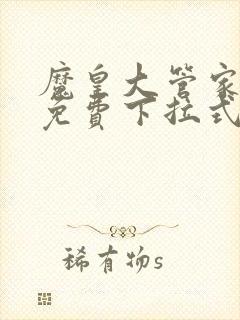 魔皇大管家
免費下拉式
稀有物s